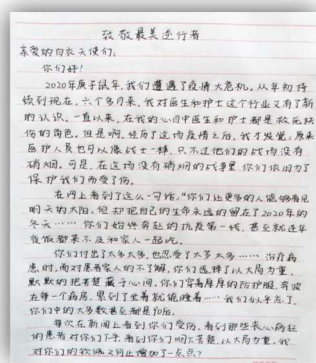 致敬最美逆行者
亲爱的白衣天使们:
你们好!
2020年庚子鼠年,我们遭遇了疫情大危机。从年初持
续到现在,六个多月来,我对医生和护士这个行业又有了新
的认识。一直以来,在我的心目中医生和护士都是救死扶
伤的角色。但是啊,经历了这场疫情之后,我才发觉,原来
医护人员也可以像战士一样,只不过他们的战场没有
硝烟。可是,在这场没有硝烟的战争里,你们依旧为了
保护我们而受了伤。
在网上看到了这么一句话,“你们让更多的人能够看见
明天的太阳,但却把自己的生命永远的留在了2020年的
冬天……你们始终奔赴的抗疫第一线,甚至就连年
夜饭都来不及和家人一起吃。
你们付出了太多太多,也忍受了太多太多……治疗病
患时,面对患者家人的不了解,你们选择了以大局为重,
默默的把苦楚藏于心间,你们穿着厚厚的防护服,奔波
在每一个病房,累到了坐着就能睡着……我们似乎忘了,
你们中的大多数甚至都是90后。
每次在新闻上看到你们受伤,看到那些丧心病狂
的患者对你们下手,看到你们明明苦楚,以大局为重,我
对你们的敬佩又何止增加了一点点?